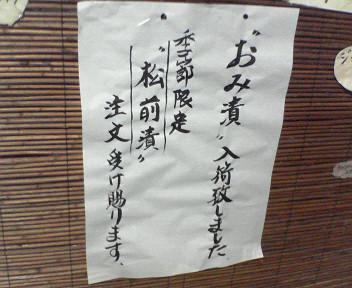 〝おみ漬〟入荷致しました。
季節限定
〝松前漬〟
注文受け賜ります。